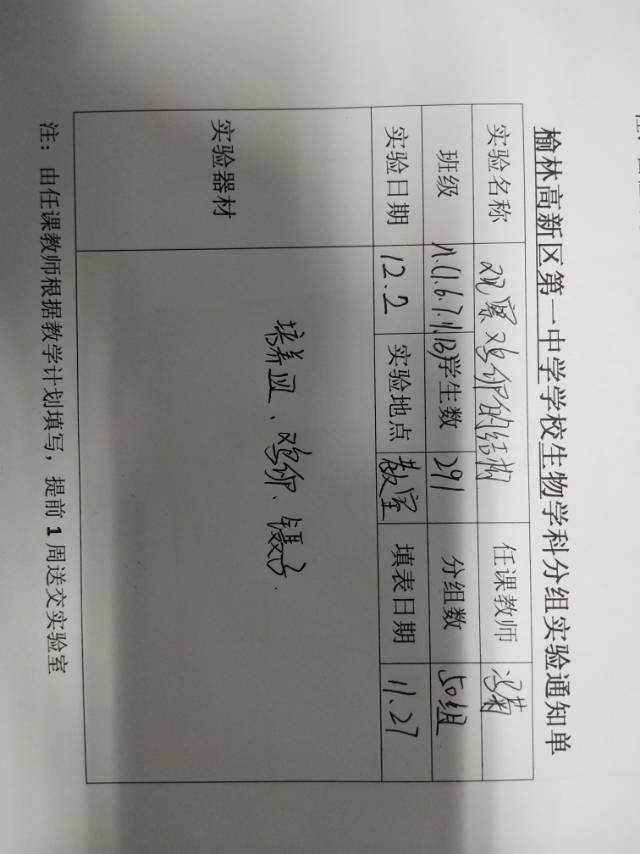 榆林高新区第一中学学校生物学科分组实验通知单
实验名称 观察鸡卵的结构 任课教师
班级 学生数 291 分组数 50组
实验日期 12.2 实验地点 教室 填表日期 11.27
实验器材 培养皿、鸡卵、镊子.
注：由任课教师根据教学计划填写，提前 1 周送交实验室